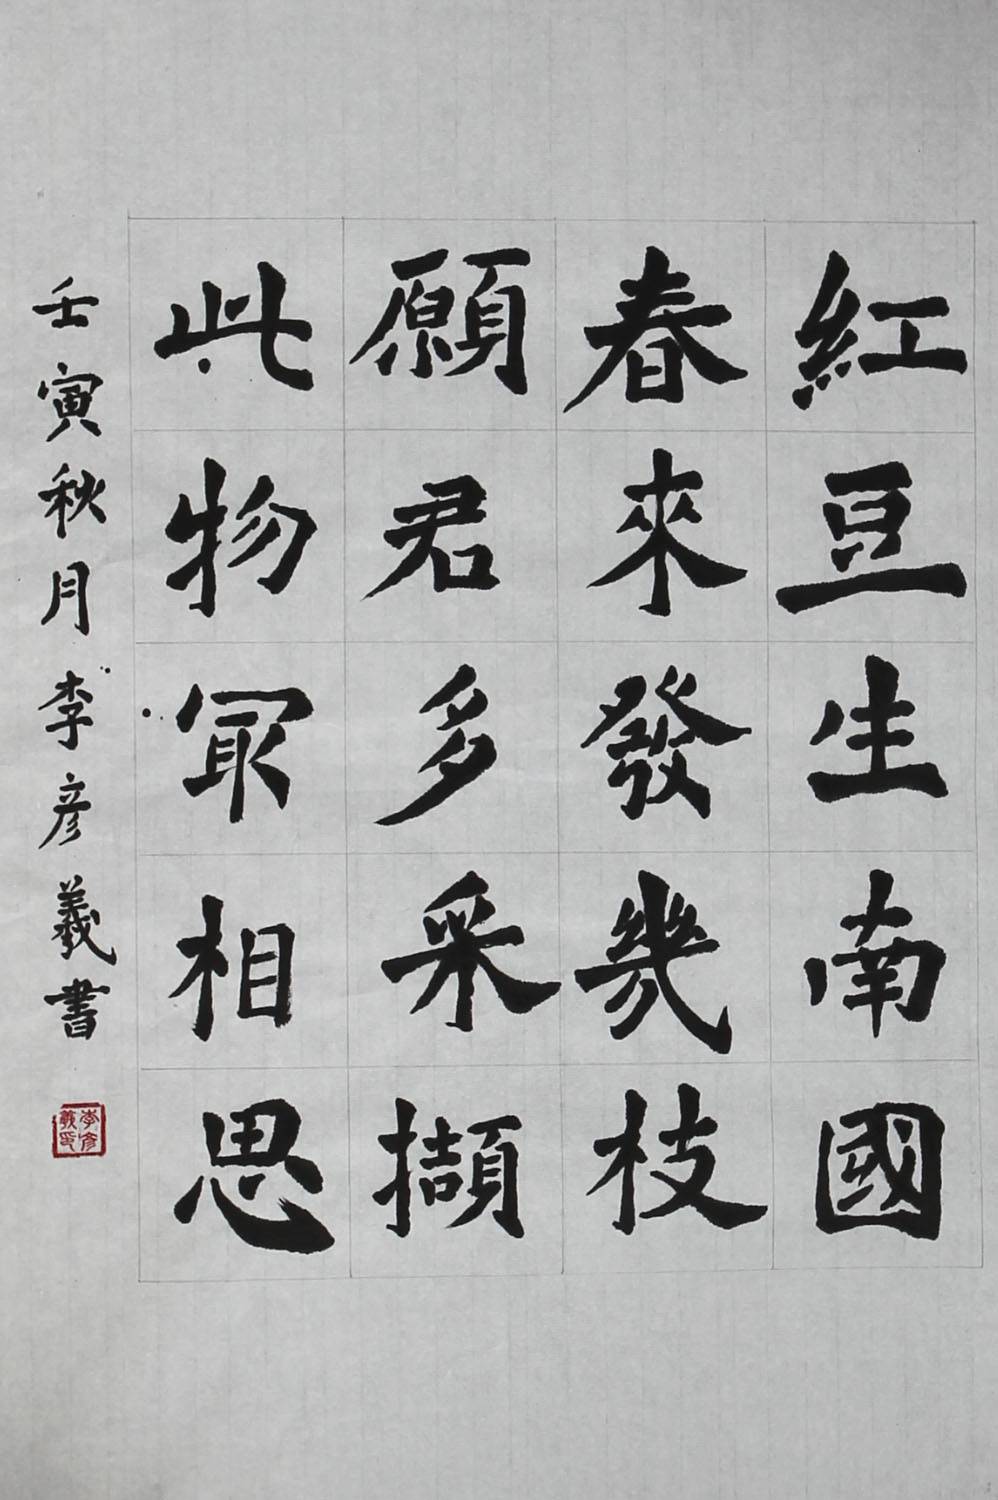 紅豆生南國
春來發幾枝
願君多采擷
此物冣相思
壬寅秋月李彦義書
李彦義印